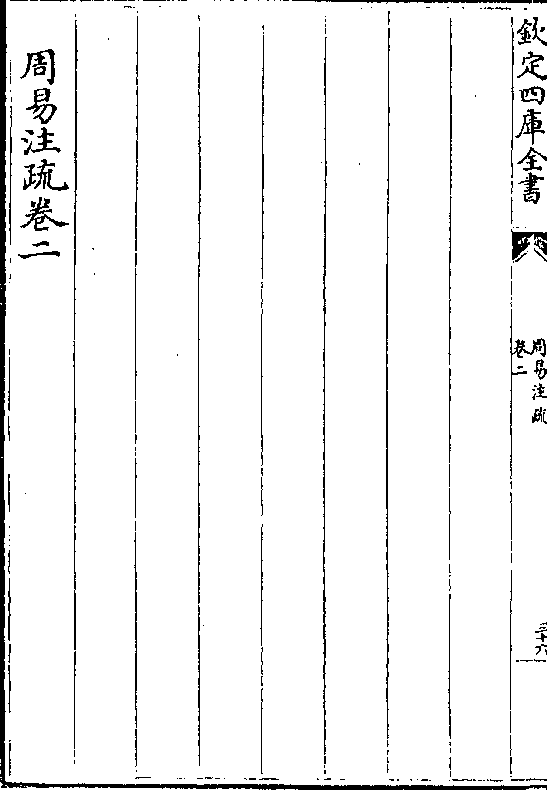 欽定四庫全書
周易注疏
卷二
三十六
周易注疏卷二